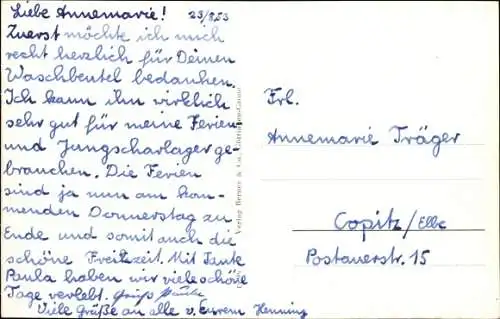 Liebe Annemarie! 23/8.53
Zuerst möchte ich mich
recht herzlich für Deinen
Waschbeutel bedanken.
Ich kann ihn wirklich
sehr gut für meine Ferien
und Jungscharlager ge-
brauchen. Die Ferien
sind ja nun am kom-
menden Donnerstag zu
Ende und somit auch die
schöne Freizeit. Mit Tante
Paula haben wir viele schöne
Tage verlebt.
Viele Grüße an alle v. Eurem Henning
Verlag Berner & Co.
Frl.
Annemarie Träger
Copitz/Elbe
Postauerstr. 15